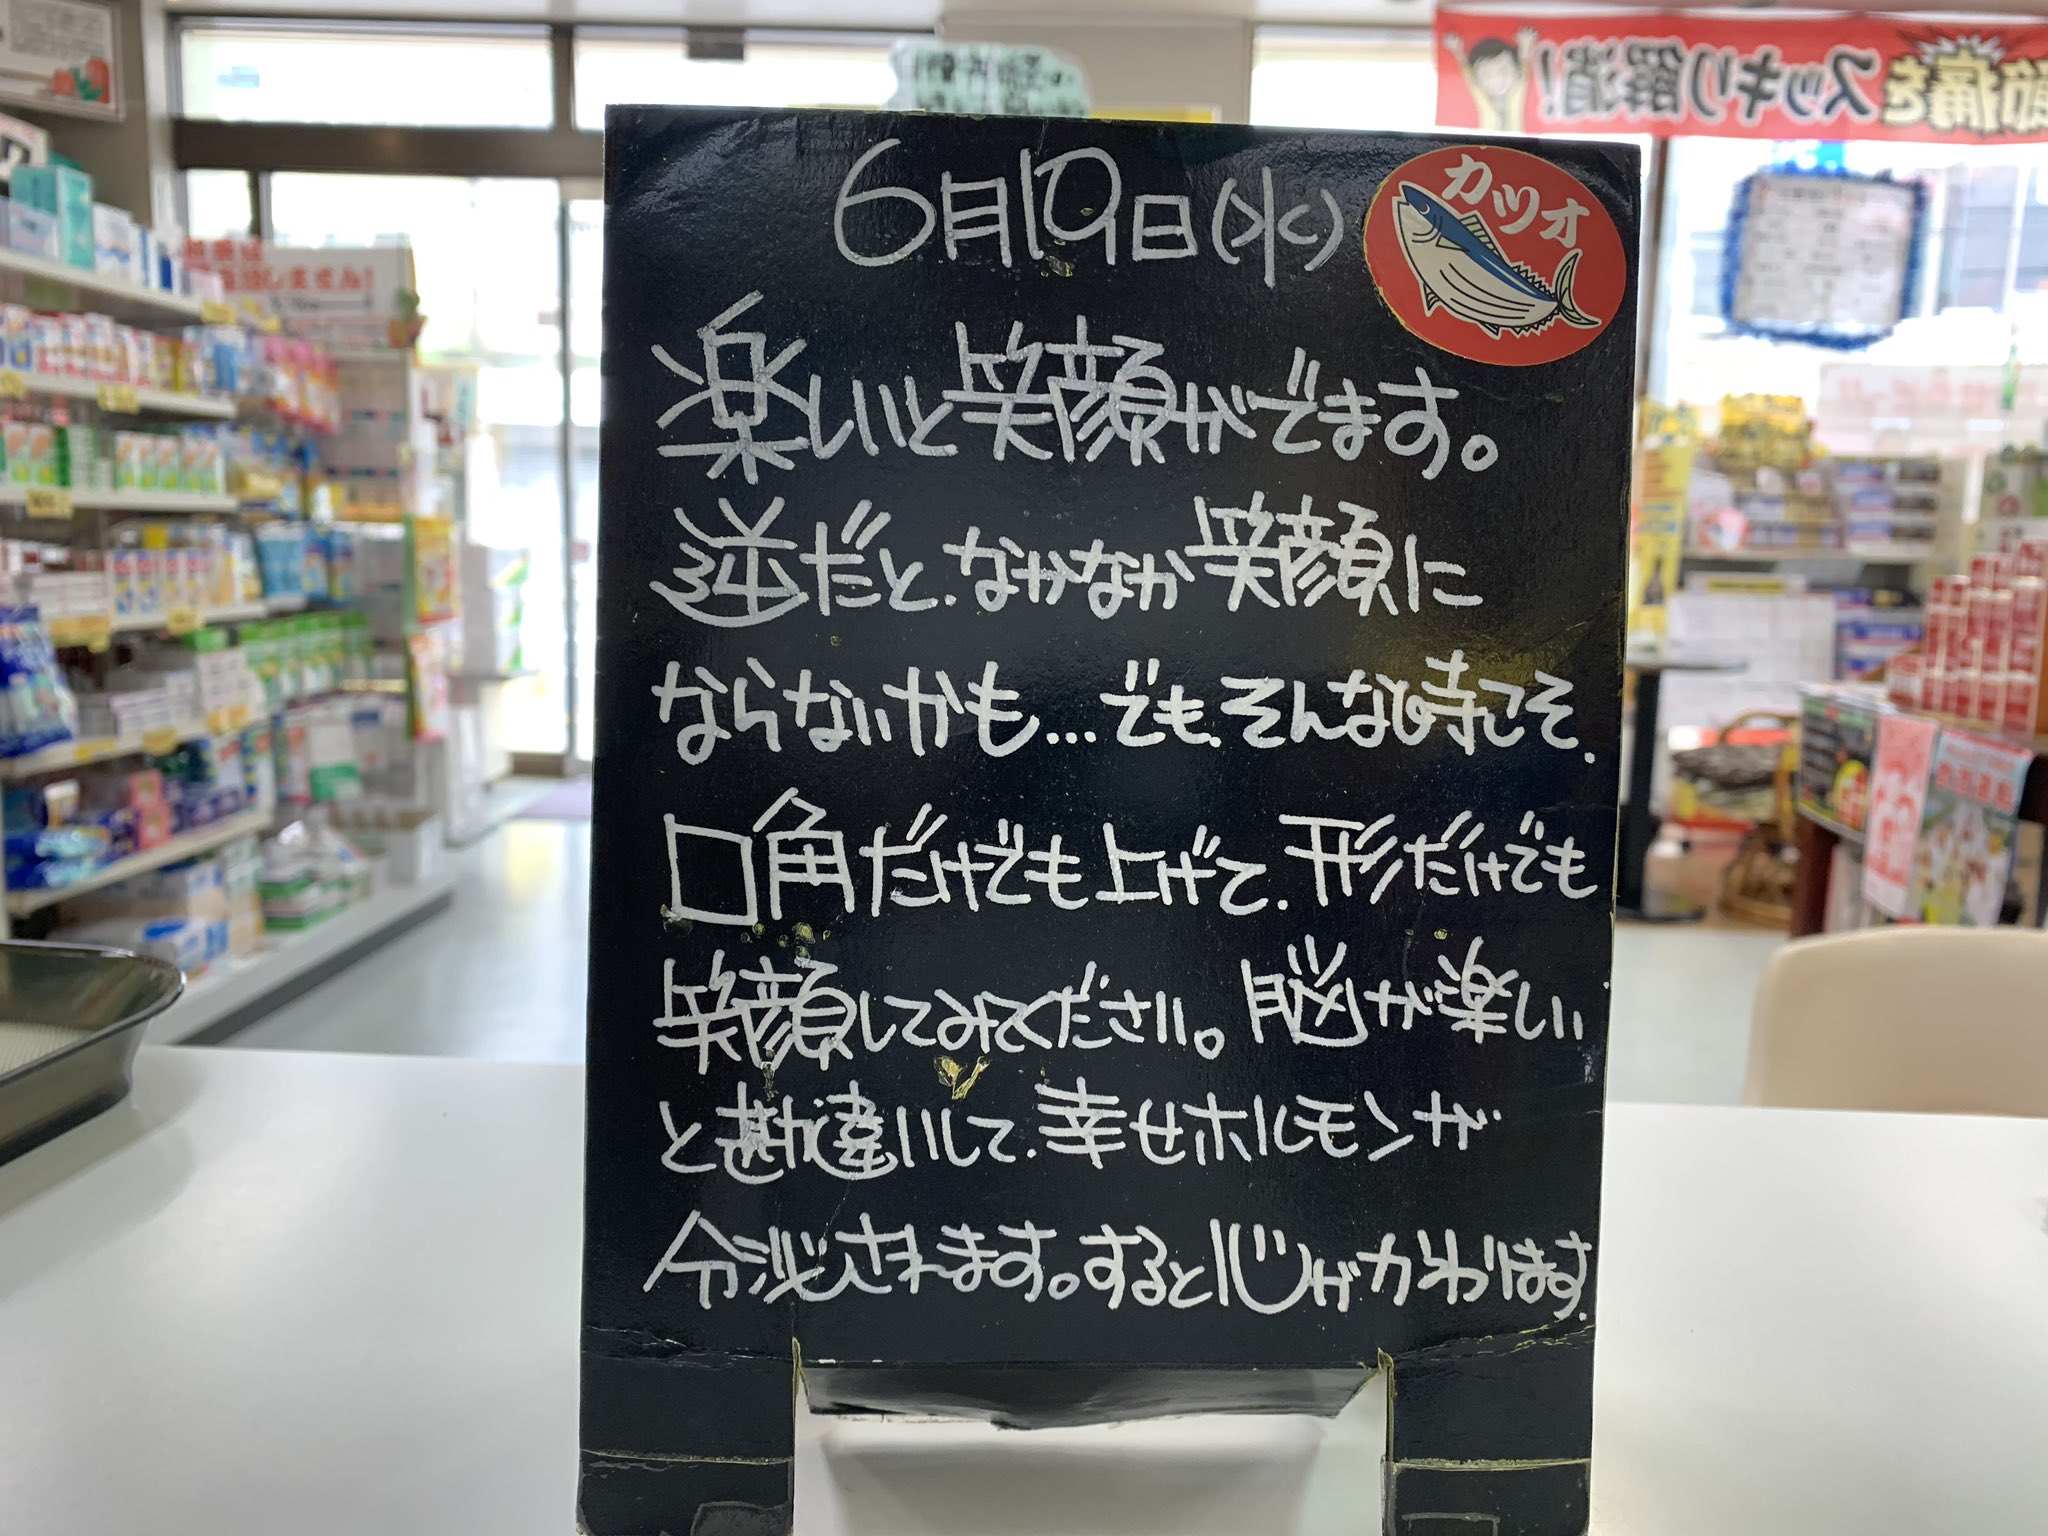 6月19日(水)
カツオ
楽しいと笑顔がでます。
逆だと、なかなか笑顔に
ならないかも…でも、そんな時こそ、
口角だけでも上げて、形だけでも
笑顔してみてください。脳が楽しい
と勘違いして、幸せホルモンが
分泌されます。すると心がかわります。
節痛をスッキリ解消!